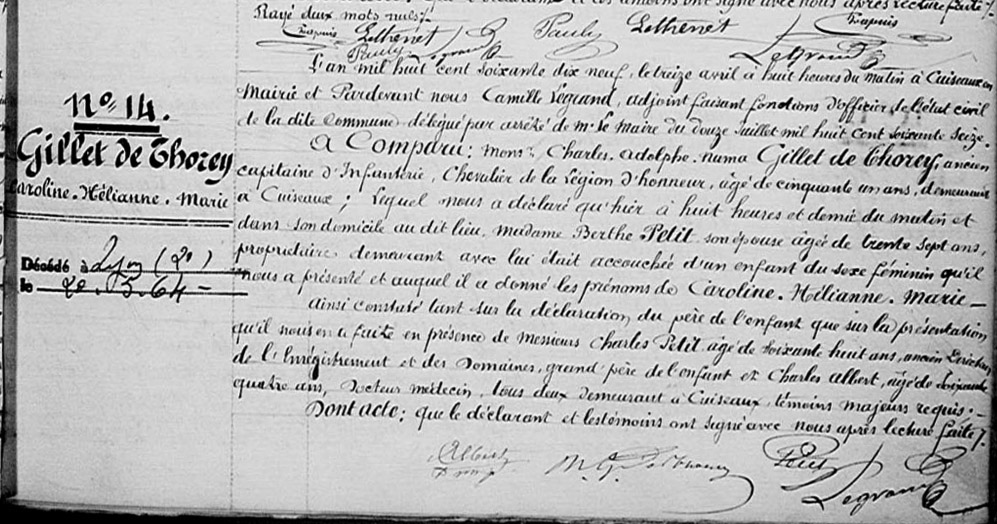 ont signé avec nous après lecture faite
Rayé deux mots nuls
Pauly Lethenet
Legrand
Pauly
Legrand
L'an mil huit cent soixante dix neuf, le treize avril à huit heures du matin à Cuiseaux en
Mairie et Pardevant nous Camille Legrand, adjoint faisant fonctions d'officier de l'état civil
de la dite Commune délégué par arrêté de Mr le Maire du douze Juillet mil huit cent soixante seize.
N° 14.
Gillet de Thorey
Caroline. Hélianne. Marie
A Comparu: Monsr Charles. Adolphe. Numa Gillet de Thorey, ancien
capitaine d'Infanterie, Chevalier de la Légion d'honneur, âgé de cinquante un ans, demeurant
à Cuiseaux; Lequel nous a déclaré qu'hier à huit heures et demie du matin et
dans son domicile au dit lieu, madame Berthe Petit son épouse âgée de trente sept ans,
propriétaire demeurant avec lui était accouchée d'un enfant du sexe féminin qu'il
nous a présenté et auquel il a donné les prénoms de Caroline. Hélianne. Marie —
Décédé à Lyon (2°)
le 20.3.64 -
ainsi constaté tant sur la déclaration du père de l'enfant que sur la présentation
qu'il nous en a faite en présence de Messieurs Charles Petit âgé de soixante huit ans, ancien Directeur
de l'Enrégistrement et des Domaines, grand père de l'enfant et Charles Albert, âgé de soixante
quatre ans, Docteur médecin, tous deux demeurant à Cuiseaux, témoins majeurs requis. —
Dont acte; que le déclarant et les témoins ont signé avec nous après lecture faite
Albert
Petit
Legrand